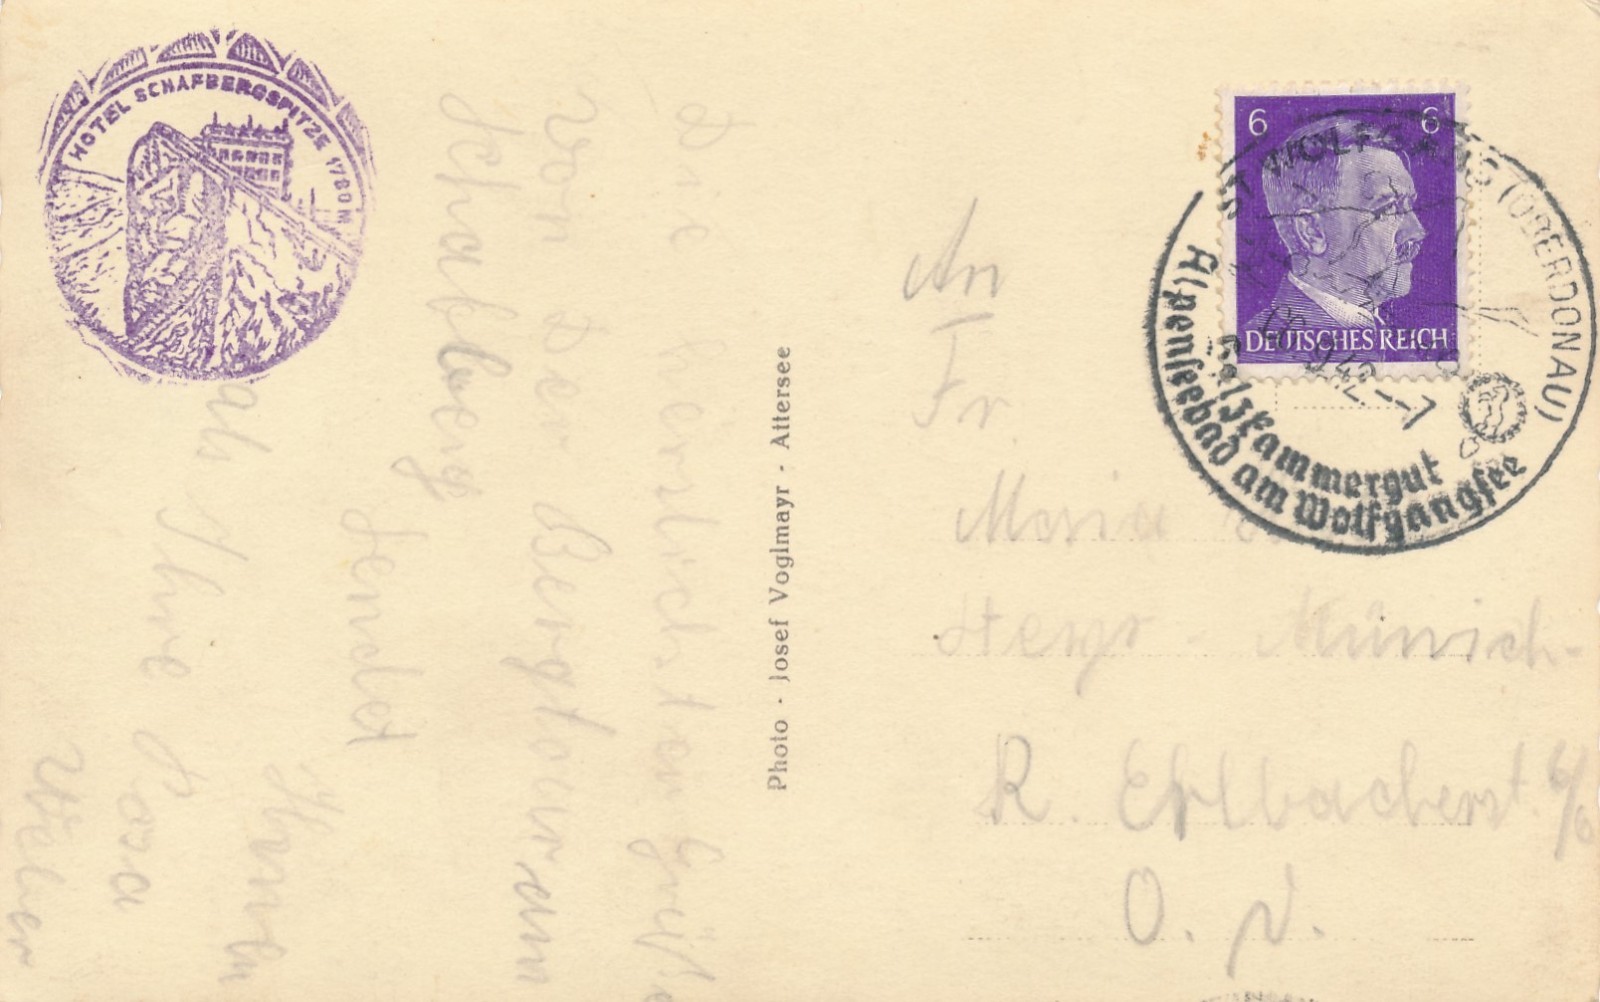 HOTEL SCHAFBERGSPITZE 1780M
Die herzlichsten Grüße
von der Bergtour am
Schafberg
sendet
Ihnen
als Ihre
Weber
Photo · Josef Voglmayr · Attersee
6 6
DEUTSCHES REICH
ST. WOLFGANG (OBERDONAU)
Salzkammergut
Alpenseebad am Wolfgangsee
An
Fr.
Maria
Steyr - Münich-
R.
O. D.